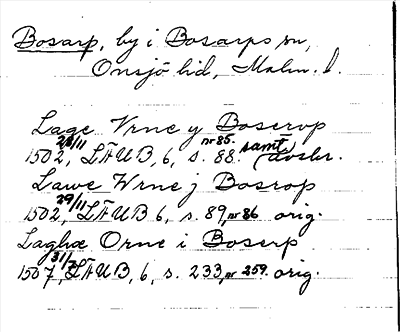 Bosarp, by i Bosarps sn,
Onsjö hd, Malm. l.
Lage Vrne y Boserop
1502, 28/11 LÄUB, 6, s. 88. nr 85. samt. avskr.
Lawe Wrne j Bosrop
1502, 29/11 LÄUB 6, s. 89, nr 86 orig.
Laghæ Orne i Boserp
1507, 31/7 LÄUB, 6, s. 233, nr 259. orig.